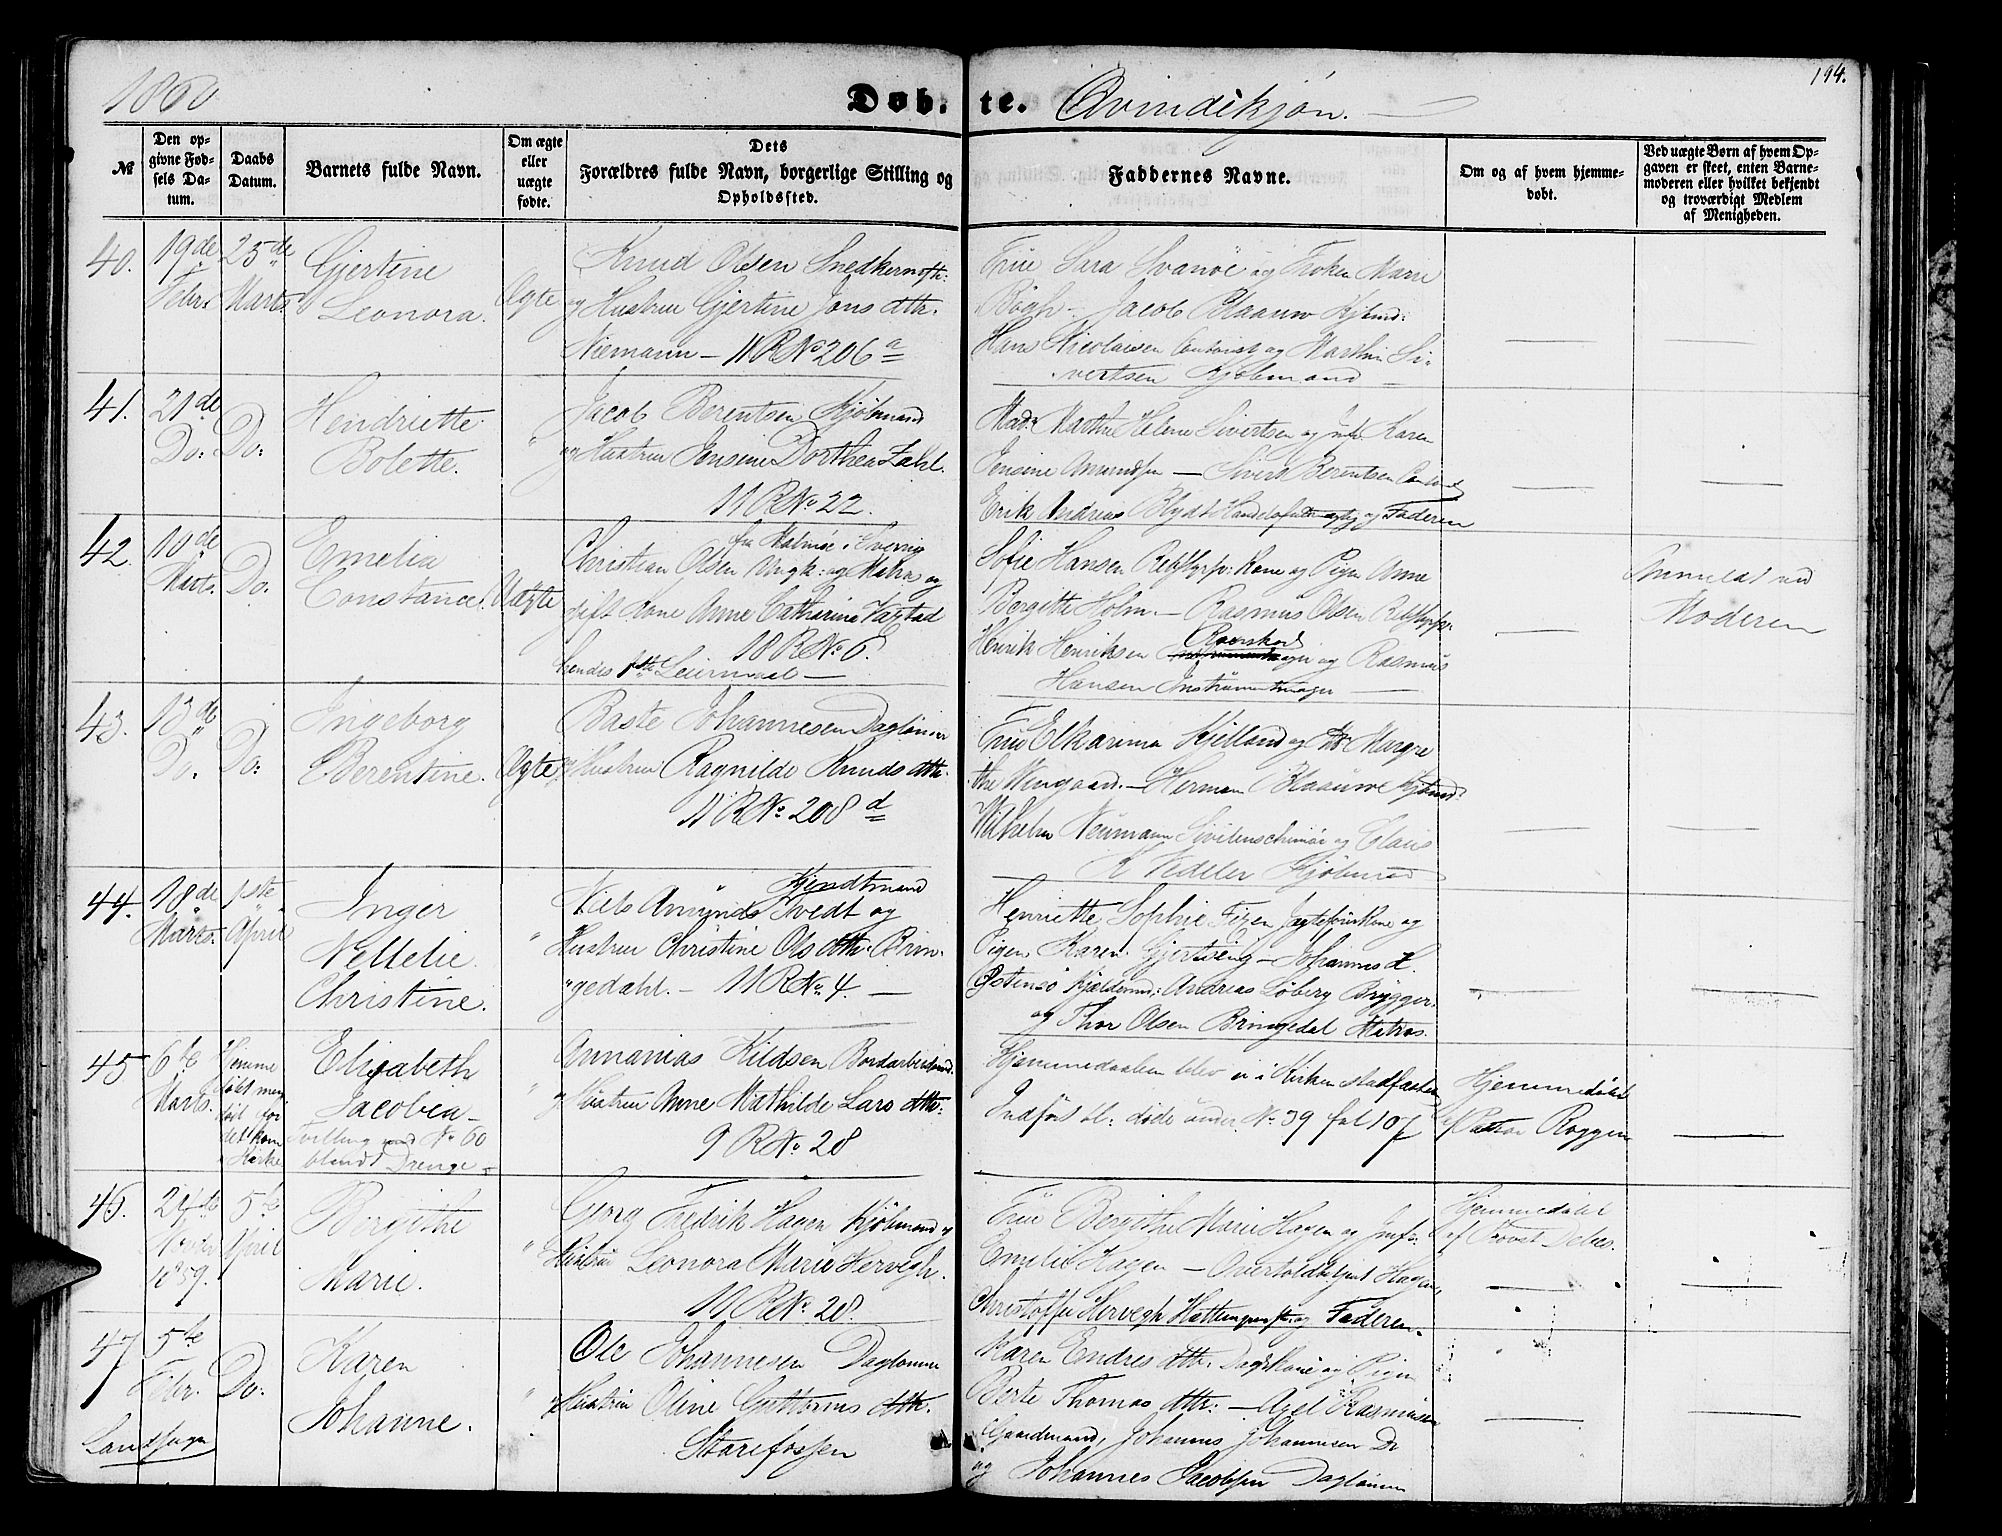 1860
Døb-
te.
Qvindekjøn.
194.
№
Den op-
givne Fød-
sels Da-
tum.
Daabs
Datum.
Barnets fulde Navn.
Om ægte
eller
uægte
fødte.
Dets
Forældres fulde Navn, borgerlige Stilling og
Opholdssted.
Faddernes Navne.
Om og af hvem hjemme-
døbt.
Ved uægte Børn af hvem Op-
gaven er skeet, enten Barne-
moderen eller hvilket bekjendt
og troværdigt Medlem
af Menigheden.
40.
19de
Febr.
25de
Marts
Gjertine
Leonora.
Ægte
Knud Olsen
og Hustru Gjertine Jons dttr.
Niemann - 11 R No 206 a
Frue Sara Svanøe og Frøken Marie
Bøgh - Jacob Blaauw Kjbmd:
Hans Nicolaisen Contorist og Marthin Si-
vertsen Kjøbmand -
41.
21de
Do:
Do:
Hendriette
Bolette.
"
Jacob Berentsen Kjøbmand
og Hustru Jensine Dorthea Zahl.
11 R No 22.
Mad. Marthe Helene Sivertsen og Jmf. Karen
Jensine Amundsen - Sivert Berentsen
Erik Andreas Blydt og Faderen
42.
10de
Marts.
Do:
Emelia
Constance.
Uægte
fra Malmøe i Sverrig
Christian Olsen Ungk: og Matros og
gift Kone Anne Catharine Vagstad
10 R No 6.
hendes 1ste Leiermaal -
Sofie Hansen Kone og Pigen Anne
Bergitte Holm. - Rasmus Olsen
Henrik Henriksen og Rasmus
Hansen Instrumentmager -
Anmeldt ved
Moderen
43.
13de
Do.
Do:
Ingeborg
Berentine.
Ægte
Baste Johannesen Dagløner
og Hustru Ragnilde Knuds dttr.
11 R No. 208 d
Frue Elkanna Kjelland og Do Margre
the Wingaard. - Herman Blaauw Kjbmd:
Wilhelm Neumann og Claus
K Vedeler Kjøbmd
44.
18de
Marts.
1ste
April
Inger
Nellelie
Christine.
"
Kjendtmand
Niels Amunds Tvedt og
Hustru Christine Ols dttr. Brin-
gedahl. - 11 R No. 4. -
Henriette Sophie Kone og
Pigen Karen Gjertveng - Johannes H.
Østensø Andreas Løberg Brygger.
og Thor Olsen Bringedal Matros.
45
6te
Marts.
Hjemme
døbt men
død før
det kom
i Kirke
Elisabeth
Jacobea -
Tvilling med No 60
blandt Drenge -
"
Annanias Kildsen Bordarbeidsmd.
og Hustru Anne Mathilde Lars dttr:
9 R No. 28
Hjemmedaaben blev ei i Kirken stadfæstet
Indført bl: døde under No 39 fol 107
Hjemmedøbt
af Pastor Roggen
46.
24de
Novbr
1859.
5te
April
Bergithe
Marie.
"
Georg Fredrik Hagen Kjøbmand og
Hustru Leonora Marie Hervegh.
10 R No. 28.
Frue Bergithe Marie Hagen og Jmfr:
Emelie Hagen - Overtoldbetjent Hagen,
Christoffer Hervegh og Faderen.
Hjemmedøbt
af Provst
47
5te
Febr.
Do:
Karen
Johanne.
"
Ole Johannesen Dagløner
og Hustru Oline Guttorms dttr.
Starefossen
Landsogn
Karen Endres dttr. Dagl Kone og Pigen
Berte Thomas dttr: - Axel Rasmusen
Gaardmand, Johannes Johannesen Do
og Johannes Jacobsen Dagløner